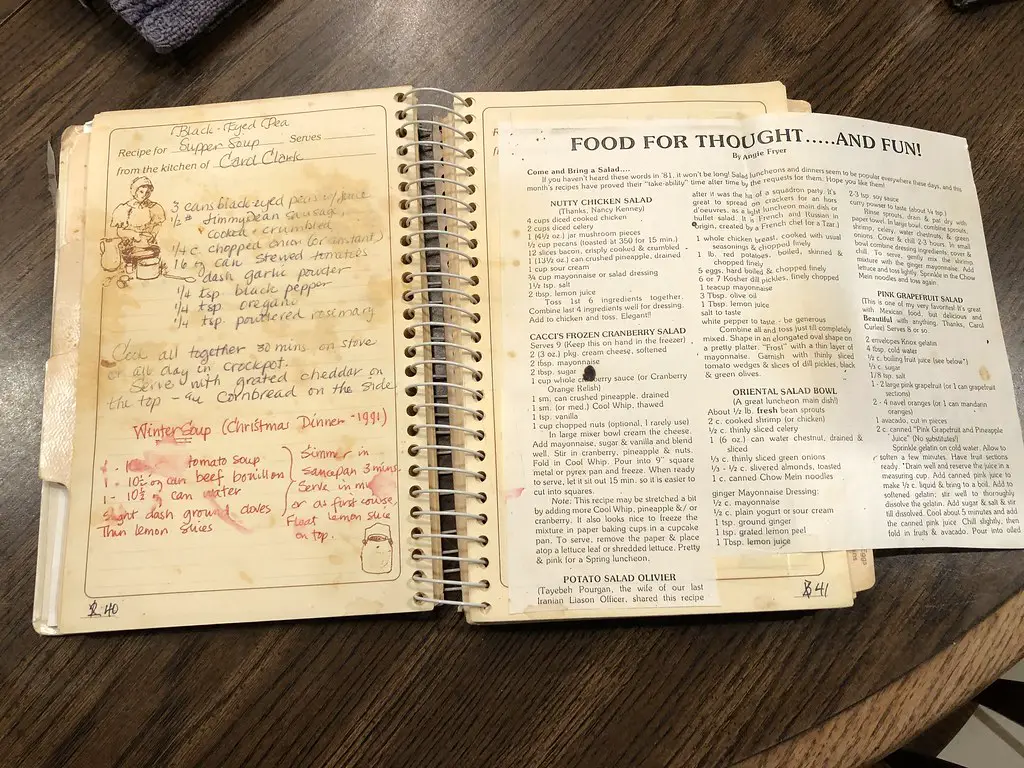 Black-Eyed Pea
Recipe for Supper Soup Serves
from the kitchen of Carol Clark
3 cans black-eyed peas w/
1/2 # Jimmy Dean sausage,
cooked + crumbled
1/4 c. chopped onion (or
16 oz can stewed tomatoes
dash garlic powder
1/4 tsp. black pepper
1/4 tsp. oregano
1/4 tsp. powdered rosemary
Cook all together 30 mins. on stove
or all day in crockpot.
Serve with grated cheddar on
the top - Cornbread on the side
Winter Soup (Christmas Dinner - 1991)
1 - tomato soup
1 - 10½ oz can beef bouillon
1 - 10½ oz can water
slight dash ground cloves
Thin lemon slices
Simmer in
saucepan 3 mins.
Serve in
or as first course.
Float lemon slice
on top.
40
R
FOOD FOR THOUGHT.....AND FUN!
By Angie Fryer
Come and Bring a Salad....
If you haven't heard these words in '81, it won't be long! Salad luncheons and dinners seem to be popular everywhere these days, and this
month's recipes have proved their "take-ability" time after time by the requests for them. Hope you like them!
NUTTY CHICKEN SALAD
(Thanks, Nancy Kenney)
4 cups diced cooked chicken
2 cups diced celery
1 (4½ oz.) jar mushroom pieces
½ cup pecans (toasted at 350 for 15 min.)
12 slices bacon, crisply cooked & crumbled
1 (13½ oz) can crushed pineapple, drained
1 cup sour cream
¾ cup mayonnaise or salad dressing
1½ tsp. salt
2 tbsp. lemon juice
Toss 1st 6 ingredients together.
Combine last 4 ingredients well for dressing.
Add to chicken and toss. Elegant!!
CACCI'S FROZEN CRANBERRY SALAD
Serves 9 (Keep this on hand in the freezer)
2 (3 oz.) pkg. cream cheese, softened
2 tbsp. mayonnaise
2 tbsp. sugar
1 cup whole cranberry sauce (or Cranberry
Orange Relish)
1 sm. can crushed pineapple, drained
1 sm. (or med.) Cool Whip, thawed
1 tsp. vanilla
1 cup chopped nuts (optional, I rarely use)
In large mixer bowl cream the cheese.
Add mayonnaise, sugar & vanilla and blend
well. Stir in cranberry, pineapple & nuts.
Fold in Cool Whip. Pour into 9" square
metal or pyrex pan and freeze. When ready
to serve, let it sit out 15 min. so it is easier to
cut into squares.
Note: This recipe may be stretched a bit
by adding more Cool Whip, pineapple &/ or
cranberry. It also looks nice to freeze the
mixture in paper baking cups in a cupcake
pan. To serve, remove the paper & place
atop a lettuce leaf or shredded lettuce. Pretty
& pink for a Spring luncheon.
POTATO SALAD OLIVIER
(Tayebeh Pourgan, the wife of our last
Iranian Liason Officer, shared this recipe
after it was the hit of a squadron party. It's
great to spread on crackers for an hors
d'oeuvres, as a light luncheon main dish or
buffet salad. It is French and Russian in
origin, created by a French chef for a Tzar.)
1 whole chicken breast, cooked with usual
seasonings & chopped finely
1 lb. red potatoes, boiled, skinned &
chopped finely
5 eggs, hard boiled & chopped finely
6 or 7 Kosher dill pickles, finely chopped
1 teacup mayonnaise
3 Tbsp. olive oil
1 Tbsp. lemon juice
salt to taste
white pepper to taste - be generous
Combine all and toss just till completely
mixed. Shape in an elongated oval shape on
a pretty platter. "Frost" with a thin layer of
mayonnaise. Garnish with thinly sliced
tomato wedges & slices of dill pickles, black
& green olives.
ORIENTAL SALAD BOWL
(A great luncheon main dish!)
About ½ lb. fresh bean sprouts
2 c. cooked shrimp (or chicken)
½ c. thinly sliced celery
1 (6 oz.) can water chestnut, drained &
sliced
⅓ c. thinly sliced green onions
⅓ - ½ c. slivered almonds, toasted
1 c. canned Chow Mein noodles
ginger Mayonnaise Dressing:
½ c. mayonnaise
½ c. plain yogurt or sour cream
1 tsp. ground ginger
1 tsp. grated lemon peel
1 Tbsp. lemon juice
2-3 tsp. soy sauce
curry powder to taste (about ¼ tsp.)
Rinse sprouts, drain & pat dry with
paper towel. In large bowl, combine sprouts,
shrimp, celery, water chestnuts, & green
onions. Cover & chill 2-3 hours. In small
bowl combine dressing ingredients; cover &
chill. To serve, gently mix the shrimp
mixture with the ginger mayonnaise. Add
lettuce and toss lightly. Sprinkle in the Chow
Mein noodles and toss again.
PINK GRAPEFRUIT SALAD
(This is one of my very favorites! It's great
with Mexican food, but delicious and
Beautiful with anything. Thanks, Carol
Curlee) Serves 8 or so.
2 envelopes Knox gelatin
4 tbsp. cold water
½ c. boiling fruit juice (see below*)
⅓ c. sugar
⅛ tsp. salt
1 - 2 large pink grapefruit (or 1 can grapefruit
sections)
2 - 4 navel oranges (or 1 can mandarin
oranges)
1 avocado, cut in pieces
2 c. canned "Pink Grapefruit and Pineapple
Juice" (No substitutes!)
Sprinkle gelatin on cold water. Allow to
soften a few minutes. Have fruit sections
ready. *Drain well and reserve the juice in a
measuring cup. Add canned pink juice to
make ½ c. liquid & bring to a boil. Add to
softened gelatin; stir well to thoroughly
dissolve the gelatin. Add sugar & salt & stir
till dissolved. Cool about 5 minutes and add
the canned pink juice. Chill slightly, then
fold in fruits & avocado. Pour into oiled
41